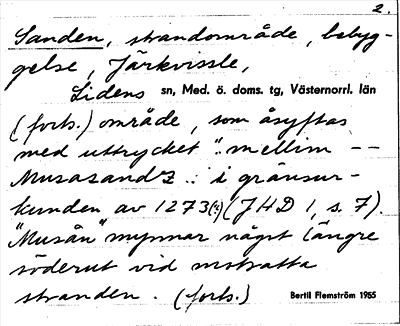 2.
Sanden, strandområde, bebyg-
gelse, Järkvissle,
Lidens sn, Med. ö. doms. tg, Västernorrl. län
(forts.) område, som åsyftas
med uttrycket ".. mellim --
Musasandz .. i gränsur-
kunden av 1273(?) (JHD 1, s. 7).
"Musån" mynnar något längre
söderut vid motsatta
stranden. (forts.)
Bertil Flemström 1965